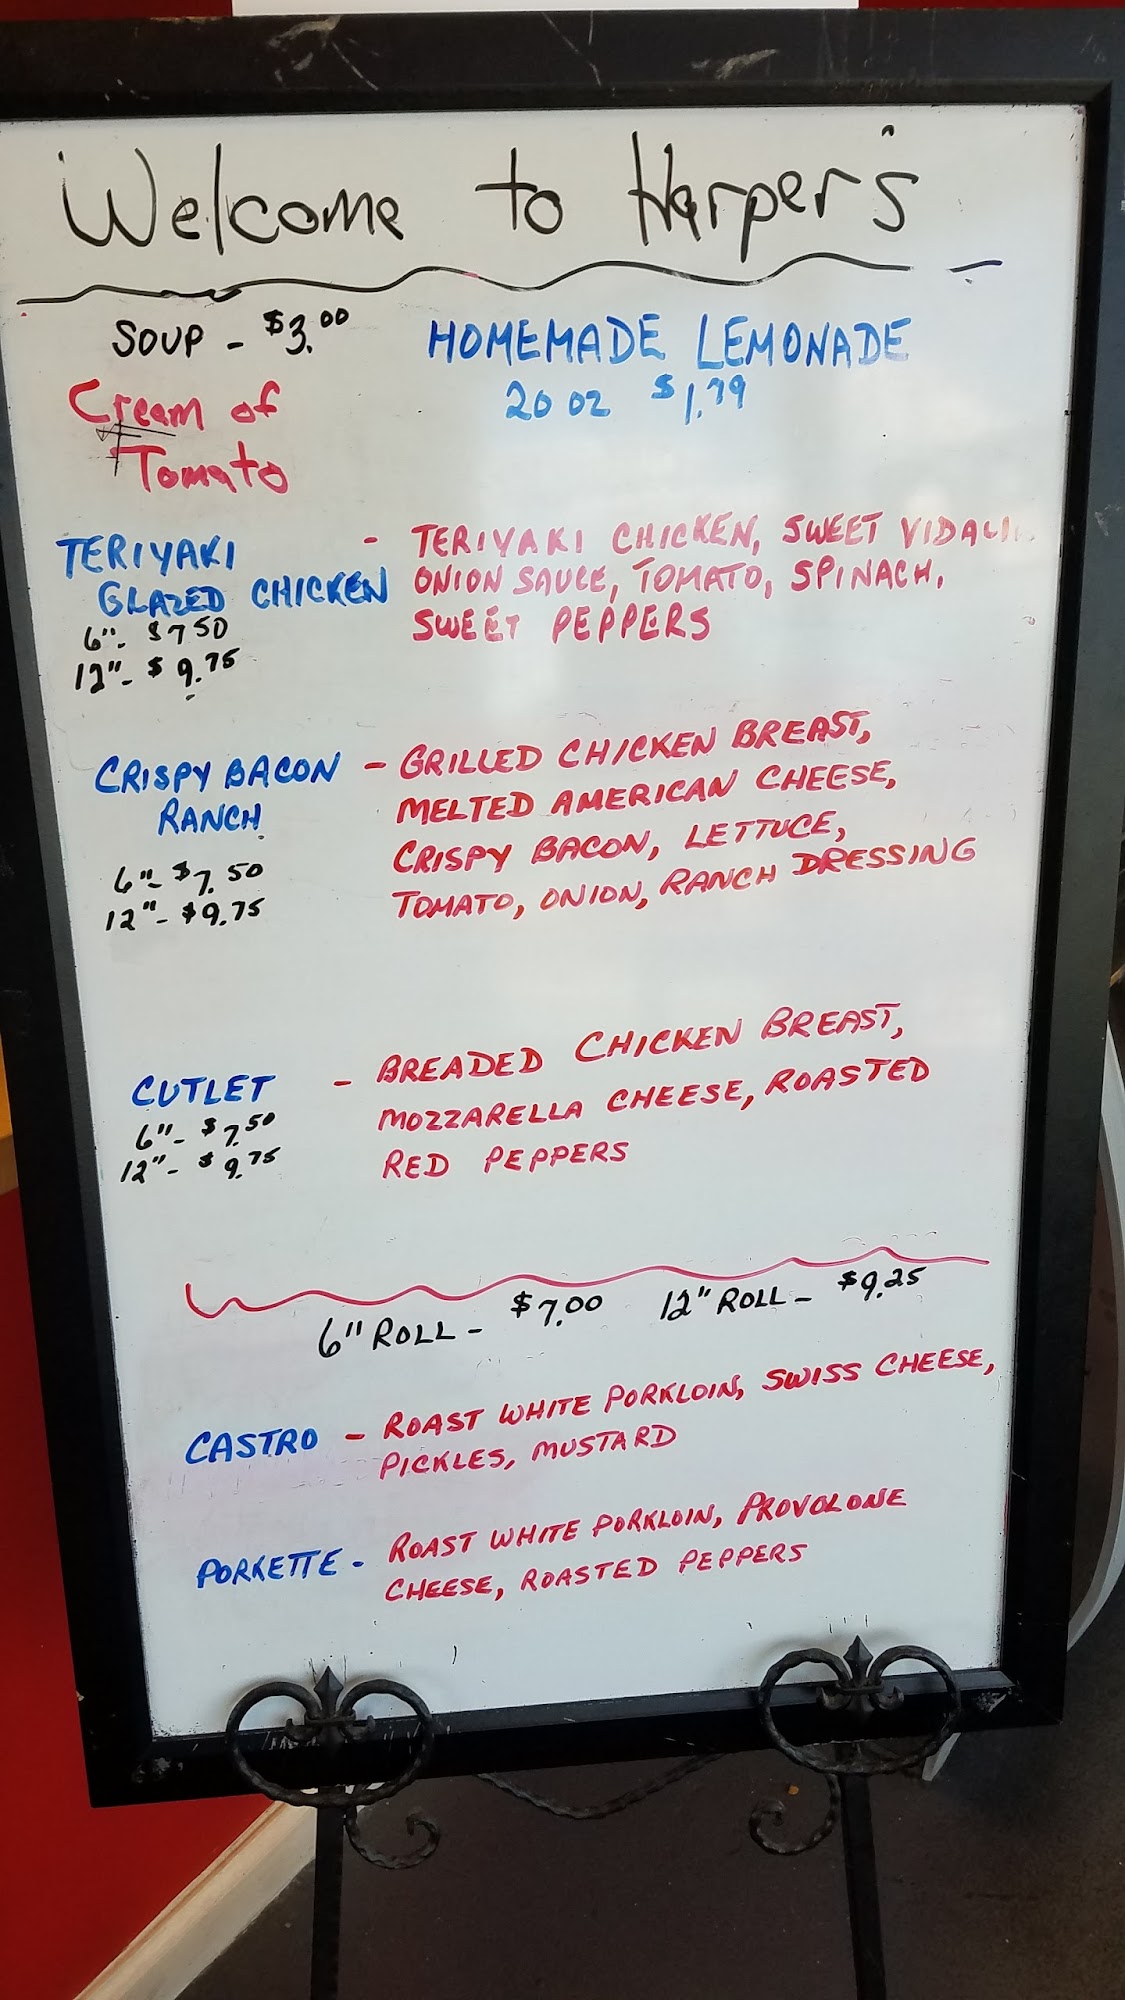 Welcome to Harper's
SOUP - $3.00
Cream of
Tomato
HOMEMADE LEMONADE
20 oz $1.79
TERIYAKI
GLAZED CHICKEN
6"- $7.50
12"- $9.75
- TERIYAKI CHICKEN, SWEET
ONION SAUCE, TOMATO, SPINACH,
SWEET PEPPERS
CRISPY BACON
RANCH
6"- $7.50
12"- $9.75
- GRILLED CHICKEN BREAST,
MELTED AMERICAN CHEESE,
CRISPY BACON, LETTUCE,
TOMATO, ONION, RANCH DRESSING
CUTLET
6"- $7.50
12"- $9.75
- BREADED CHICKEN BREAST,
MOZZARELLA CHEESE, ROASTED
RED PEPPERS
6" ROLL - $7.00 12" ROLL - $9.25
CASTRO - ROAST WHITE PORKLOIN, SWISS CHEESE,
PICKLES, MUSTARD
PORKETTE - ROAST WHITE PORKLOIN, PROVOLONE
CHEESE, ROASTED PEPPERS